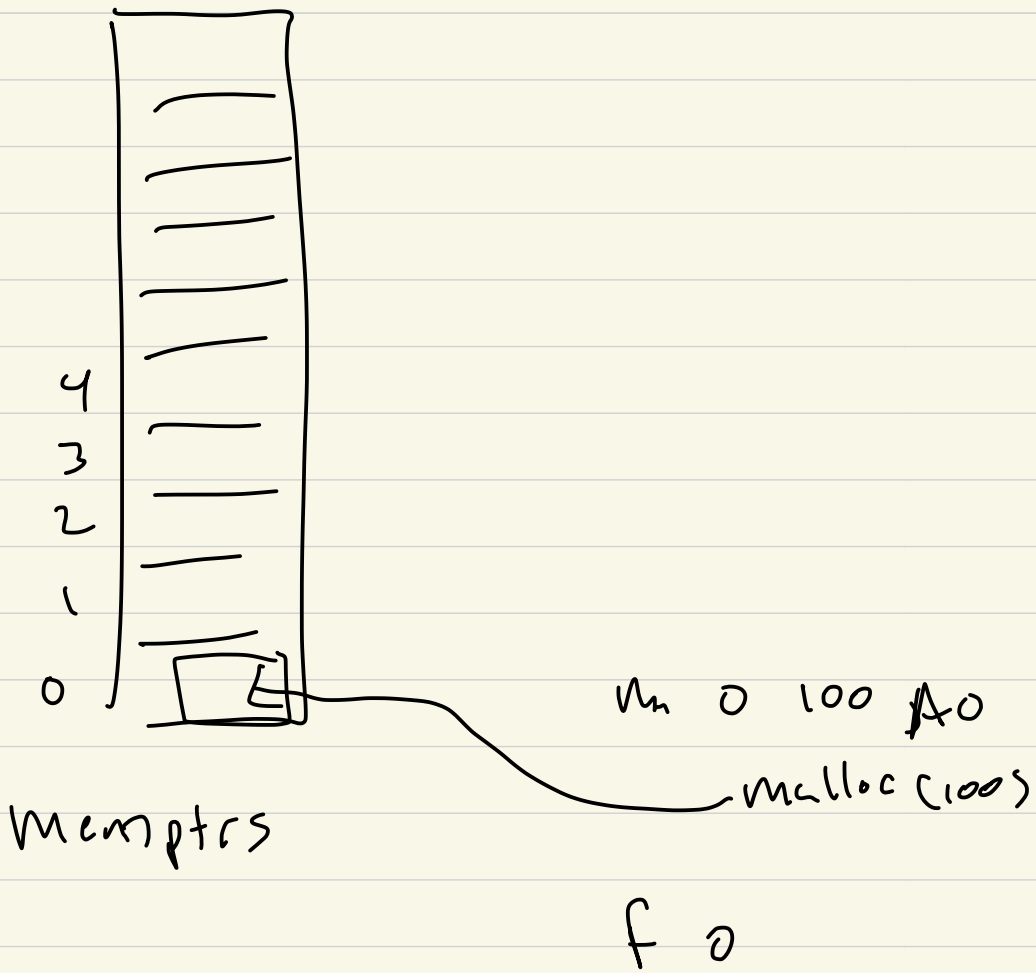 4
3
2
1
0
m 0 100 A0
malloc(100)
Memptrs
f 0